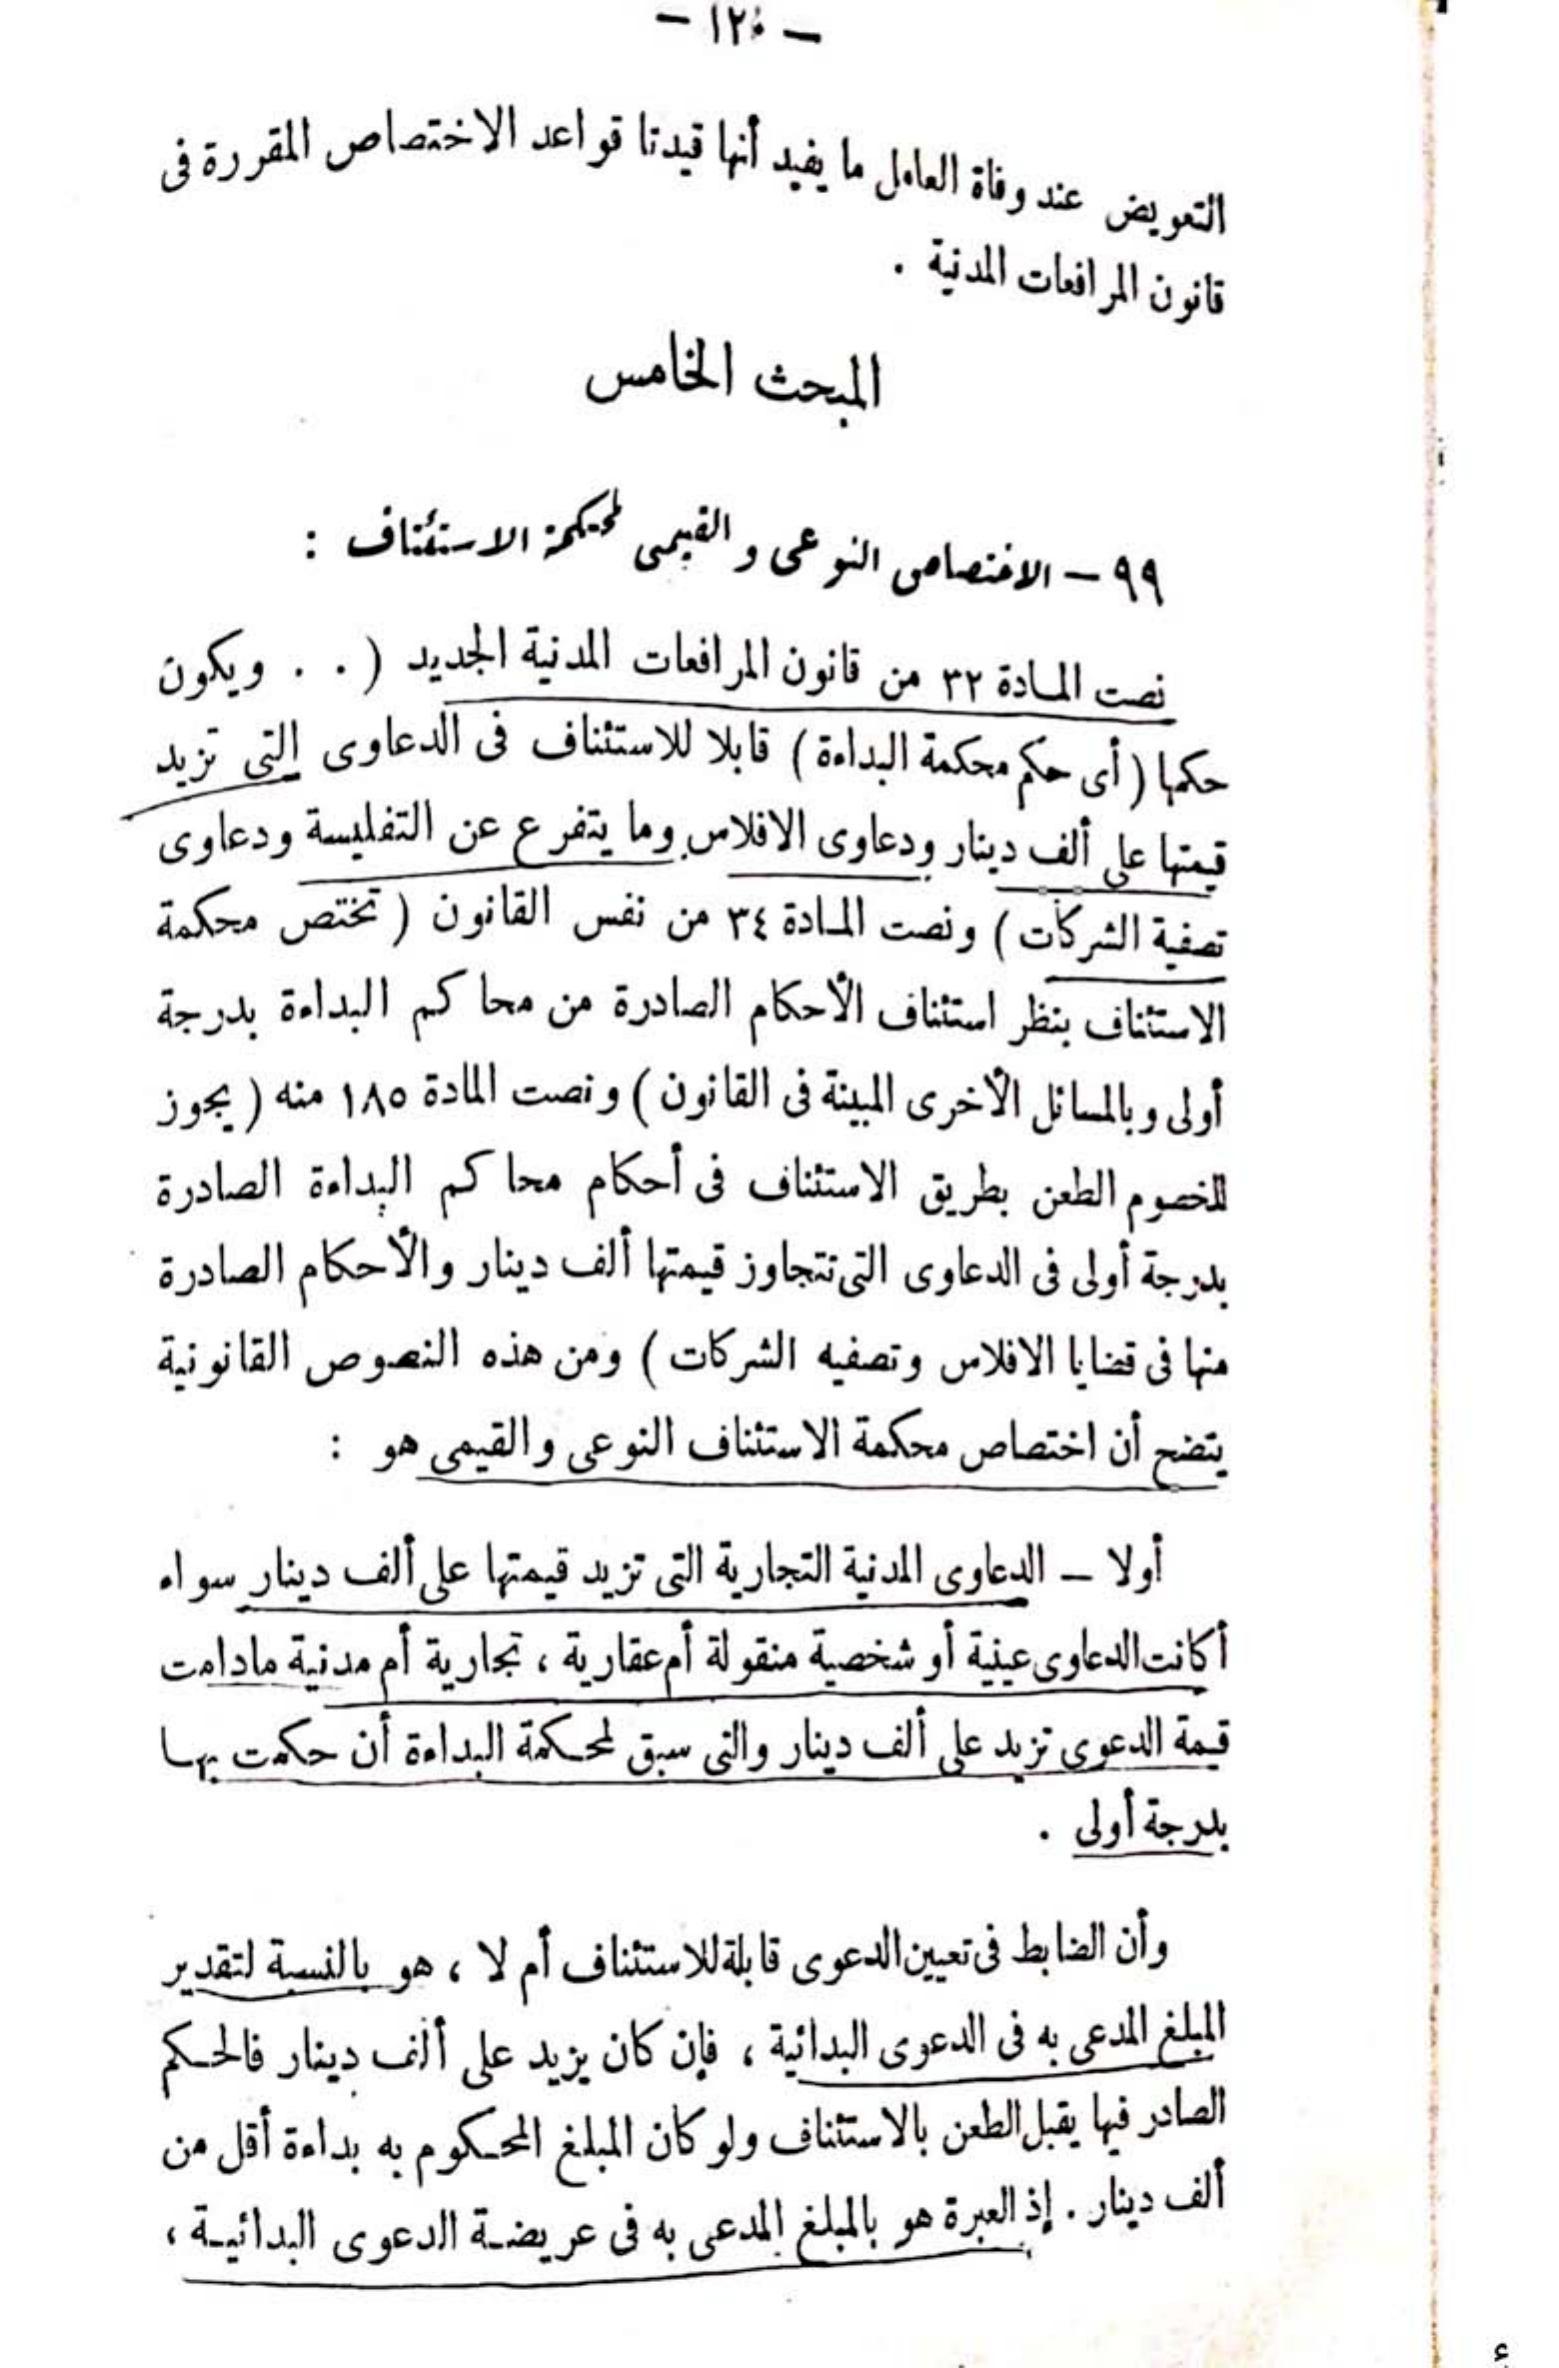 — ١٢٠ —
التعويض عند وفاة العامل ما يفيد أنها قيدتا قواعد الاختصاص المقررة فى
قانون المرافعات المدنية .
المبحث الخامس
٩٩ — الاختصاص النوعى والقيمى لمحكمة الاستئناف :
نصت المادة ٣٢ من قانون المرافعات المدنية الجديد ( . . ويكون
حكمها ( أى حكم محكمة البداءة ) قابلا للاستئناف فى الدعاوى التى تزيد
قيمتها على ألف دينار ودعاوى الافلاس وما يتفرع عن التفليسة ودعاوى
تصفية الشركات ) ونصت المادة ٣٤ من نفس القانون ( تختص محكمة
الاستئناف بنظر استئناف الأحكام الصادرة من محاكم البداءة بدرجة
أولى وبالمسائل الأخرى المبينة فى القانون ) ونصت المادة ١٨٥ منه ( يجوز
للخصوم الطعن بطريق الاستئناف فى أحكام محاكم البداءة الصادرة
بدرجة أولى فى الدعاوى التى تتجاوز قيمتها ألف دينار والأحكام الصادرة
منها فى قضايا الافلاس وتصفيه الشركات ) ومن هذه النصوص القانونية
يتضح أن اختصاص محكمة الاستئناف النوعى والقيمى هو :
أولا — الدعاوى المدنية التجارية التى تزيد قيمتها على ألف دينار سواء
أكانت الدعاوى عينية أو شخصية منقولة أم عقارية ، تجارية أم مدنية مادامت
قيمة الدعوى تزيد على ألف دينار والتى سبق لمحكمة البداءة أن حكمت بها
بدرجة أولى .
وأن الضابط فى تعيين الدعوى قابلة للاستئناف أم لا ، هو بالنسبة لتقدير
المبلغ المدعى به فى الدعوى البدائية ، فإن كان يزيد على ألف دينار فالحكم
الصادر فيها يقبل الطعن بالاستئناف ولو كان المبلغ المحكوم به بداءة أقل من
ألف دينار . إذ العبرة هو بالمبلغ المدعى به فى عريضة الدعوى البدائية ،